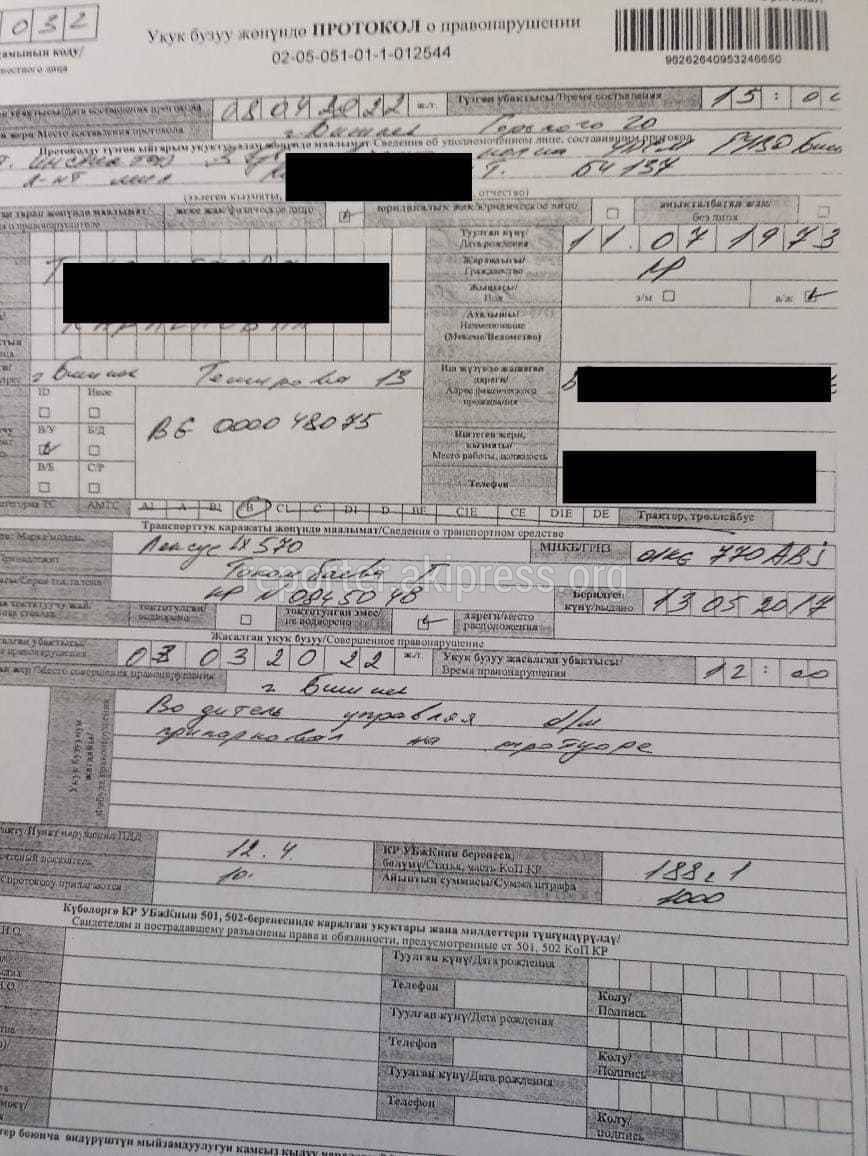 032
Укук бузуу жөнүндө ПРОТОКОЛ о правонарушении
02-05-051-01-1-012544
96262640953246650
Дата составления протокола 08 04 2022 ж./г. Түзгөн убактысы/Время составления 15 : 0
Место составления протокола г. Бишкек Горького 20
Протоколду түзгөн ыйгарым укуктуу адам жөнүндө маалымат/Сведения об уполномоченном лице, составившем протокол
БЧ 137
(ээлеген кызматы, отчество)
жеке жак/физическое лицо юридикалык жак/юридическое лицо аныкталбаган жак/
без лица
Туулган күнү/
Дата рождения 11. 07 1973
Жарандыгы/
Гражданство КР
Жынысы/
Пол э/м а/ж
Аталышы/
Наименование
(Мекеме/Ведомство)
г. Бишкек Темирова 13
Иш жүзүндө жашаган
дареги/
Адрес фактического
проживания
ID Иное
В/У Б/Д
В/Б С/Р
ВБ 000048075
Иштеген жери,
кызматы/
Место работы, должность
Телефон
АМТС A1 A B1 B C1 C D1 D BE C1E CE D1E DE Трактор, троллейбус
Транспорттук каражаты жөнүндө маалымат/Сведения о транспортном средстве
Лексус LX 570 МНКБ/ГРНЗ 01KG 770ABJ
Токомбаева Т
КР N 0845048 Берилген
күнү/выдано 13 05 2017
токтотулган/
водворено токтотулган эмес/
не водворено дареги/место
расположения
Жасалган укук бузуу/Совершенное правонарушение
03 03 2022 ж./г. Укук бузуу жасалган убактысы/
Время правонарушения 12 : 00
Место совершения правонарушения г Бишкек
Укук бузуунун
жагдайы/
Фабула правонарушения
Водитель управляя а/м
припарковал на тротуаре
Пункт нарушения ПДД 12.4. КР УБжКнин беренеси,
бөлүмү/Статья, часть КоП КР 188,1
10. Айыптын суммасы/Сумма штрафа 1000
Күбөлөргө КР УБжКнын 501, 502-беренесинде каралган укуктары жана милдеттери түшүндүрүлдү/
Свидетелям и пострадавшему разъяснены права и обязанности, предусмотренные ст 501, 502 КоП КР
Туулган күнү/Дата рождения
Телефон Колу/
Подпись
Туулган күнү/Дата рождения
Телефон Колу/
Подпись
Туулган күнү/Дата рождения
Телефон Колу/
подпись
reporter.akipress.org